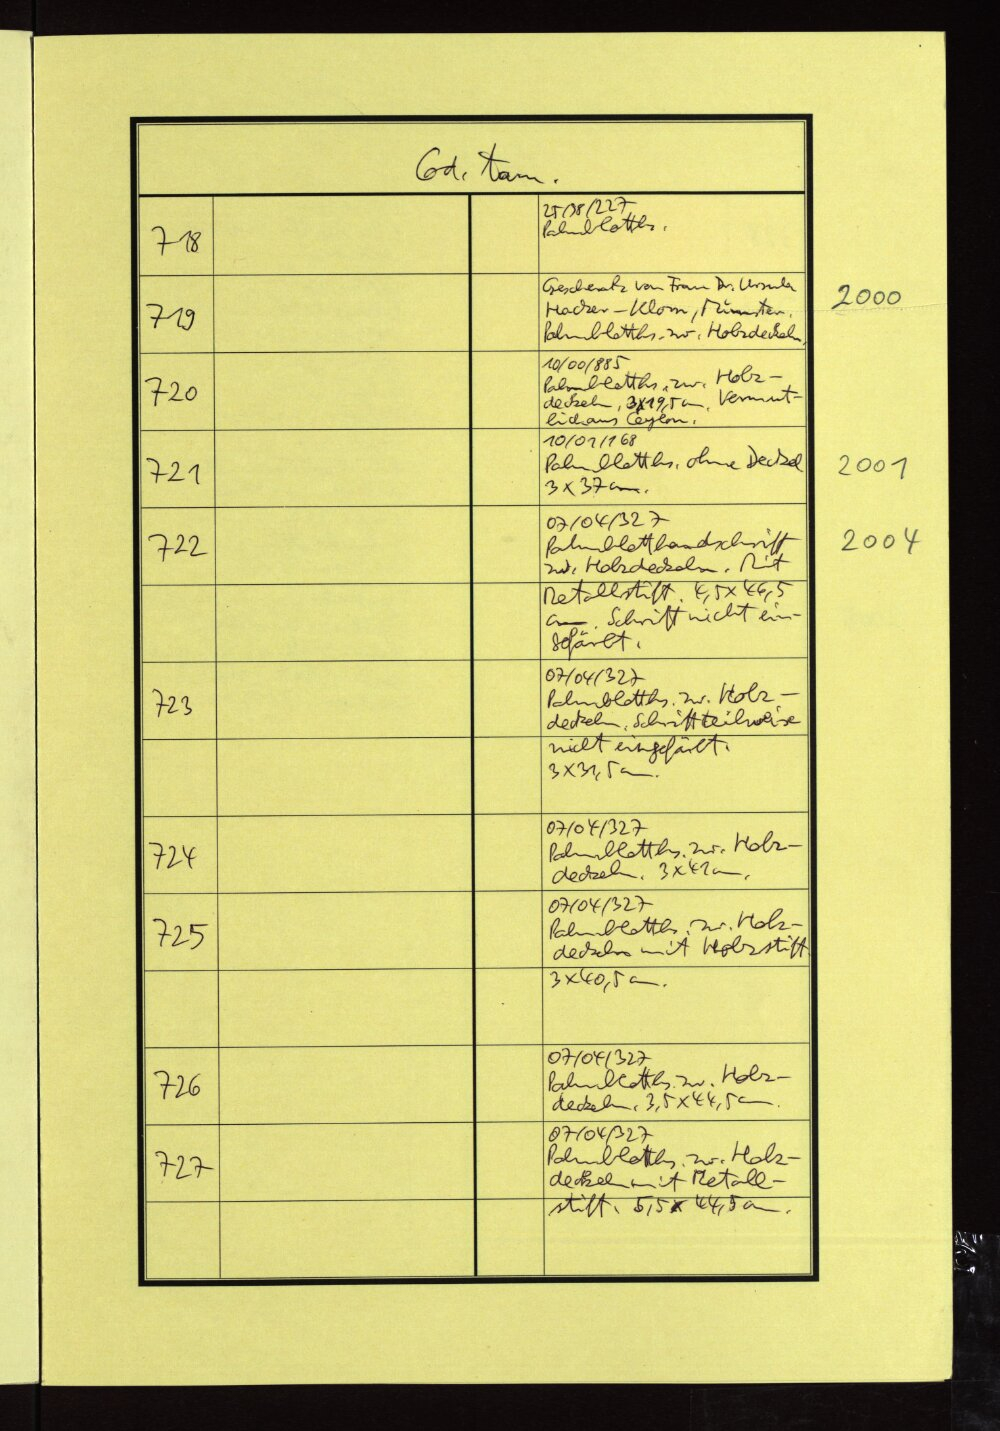 Cod. tam.
718
25/98/227
Palmblatths.
719
Geschenk von Frau Dr. Ursula
Hacker-Klom, Münster.
Palmblatths. zw. Holzdeckeln.
2000
720
10/00/885
Palmblatths. zw. Holz-
deckeln, 3x19,5 cm. Vermut-
lich aus Ceylon.
721
10/01/168
Palmblatths. ohne Deckel
3x37 cm.
2001
722
07/04/327
Palmblatthandschrift
zw. Holzdeckeln. Mit
Metallstift. 4,5x46,5
cm. Schrift nicht ein-
gefärbt.
2004
723
07/04/327
Palmblatths. zw. Holz-
deckeln. Schrift teilweise
nicht eingefärbt.
3x31,5 cm.
724
07/04/327
Palmblatths. zw. Holz-
deckeln. 3x41 cm.
725
07/04/327
Palmblatths. zw. Holz-
deckeln mit Holzstift
3x40,5 cm.
726
07/04/327
Palmblatths. zw. Holz-
deckeln. 3,5x44,5 cm.
727
07/04/327
Palmblatths. zw. Holz-
deckeln mit Metall-
stift. 5,5x44,5 cm.